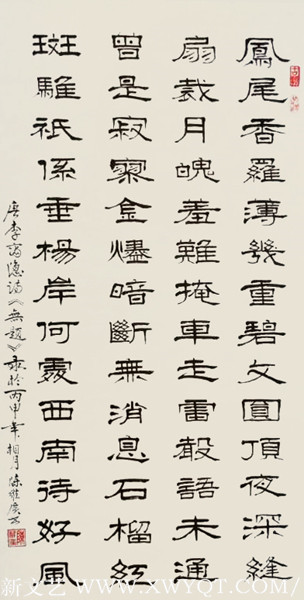 鳳尾香羅薄幾重碧文圓頂夜深縫
扇裁月魄羞難掩車走雷聲語未通
曾是寂寥金燼暗斷無消息石榴紅
斑騅祇係垂楊岸何處西南待好風
唐李商隱詩《無題》录於丙申年相月陈維廣
新文艺 WWW.XWYQT.COM